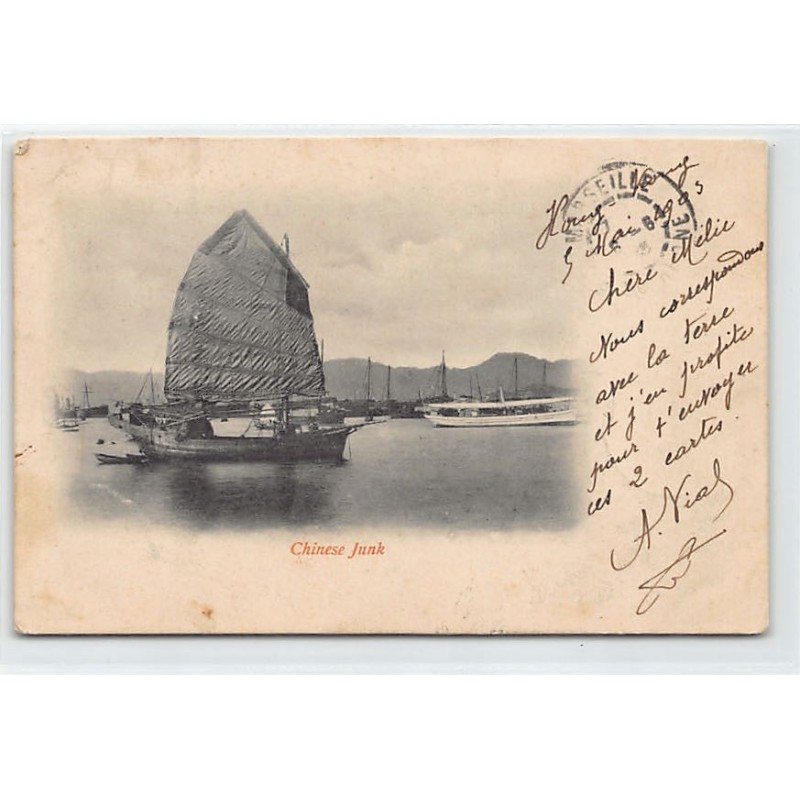 Chinese Junk
MARSEILLE
Hong-Kong
5 Mai 1903
Chère Mélie
Nous correspondons
avec la terre
et j'en profite
pour t'envoyer
ces 2 cartes.
A. Vial